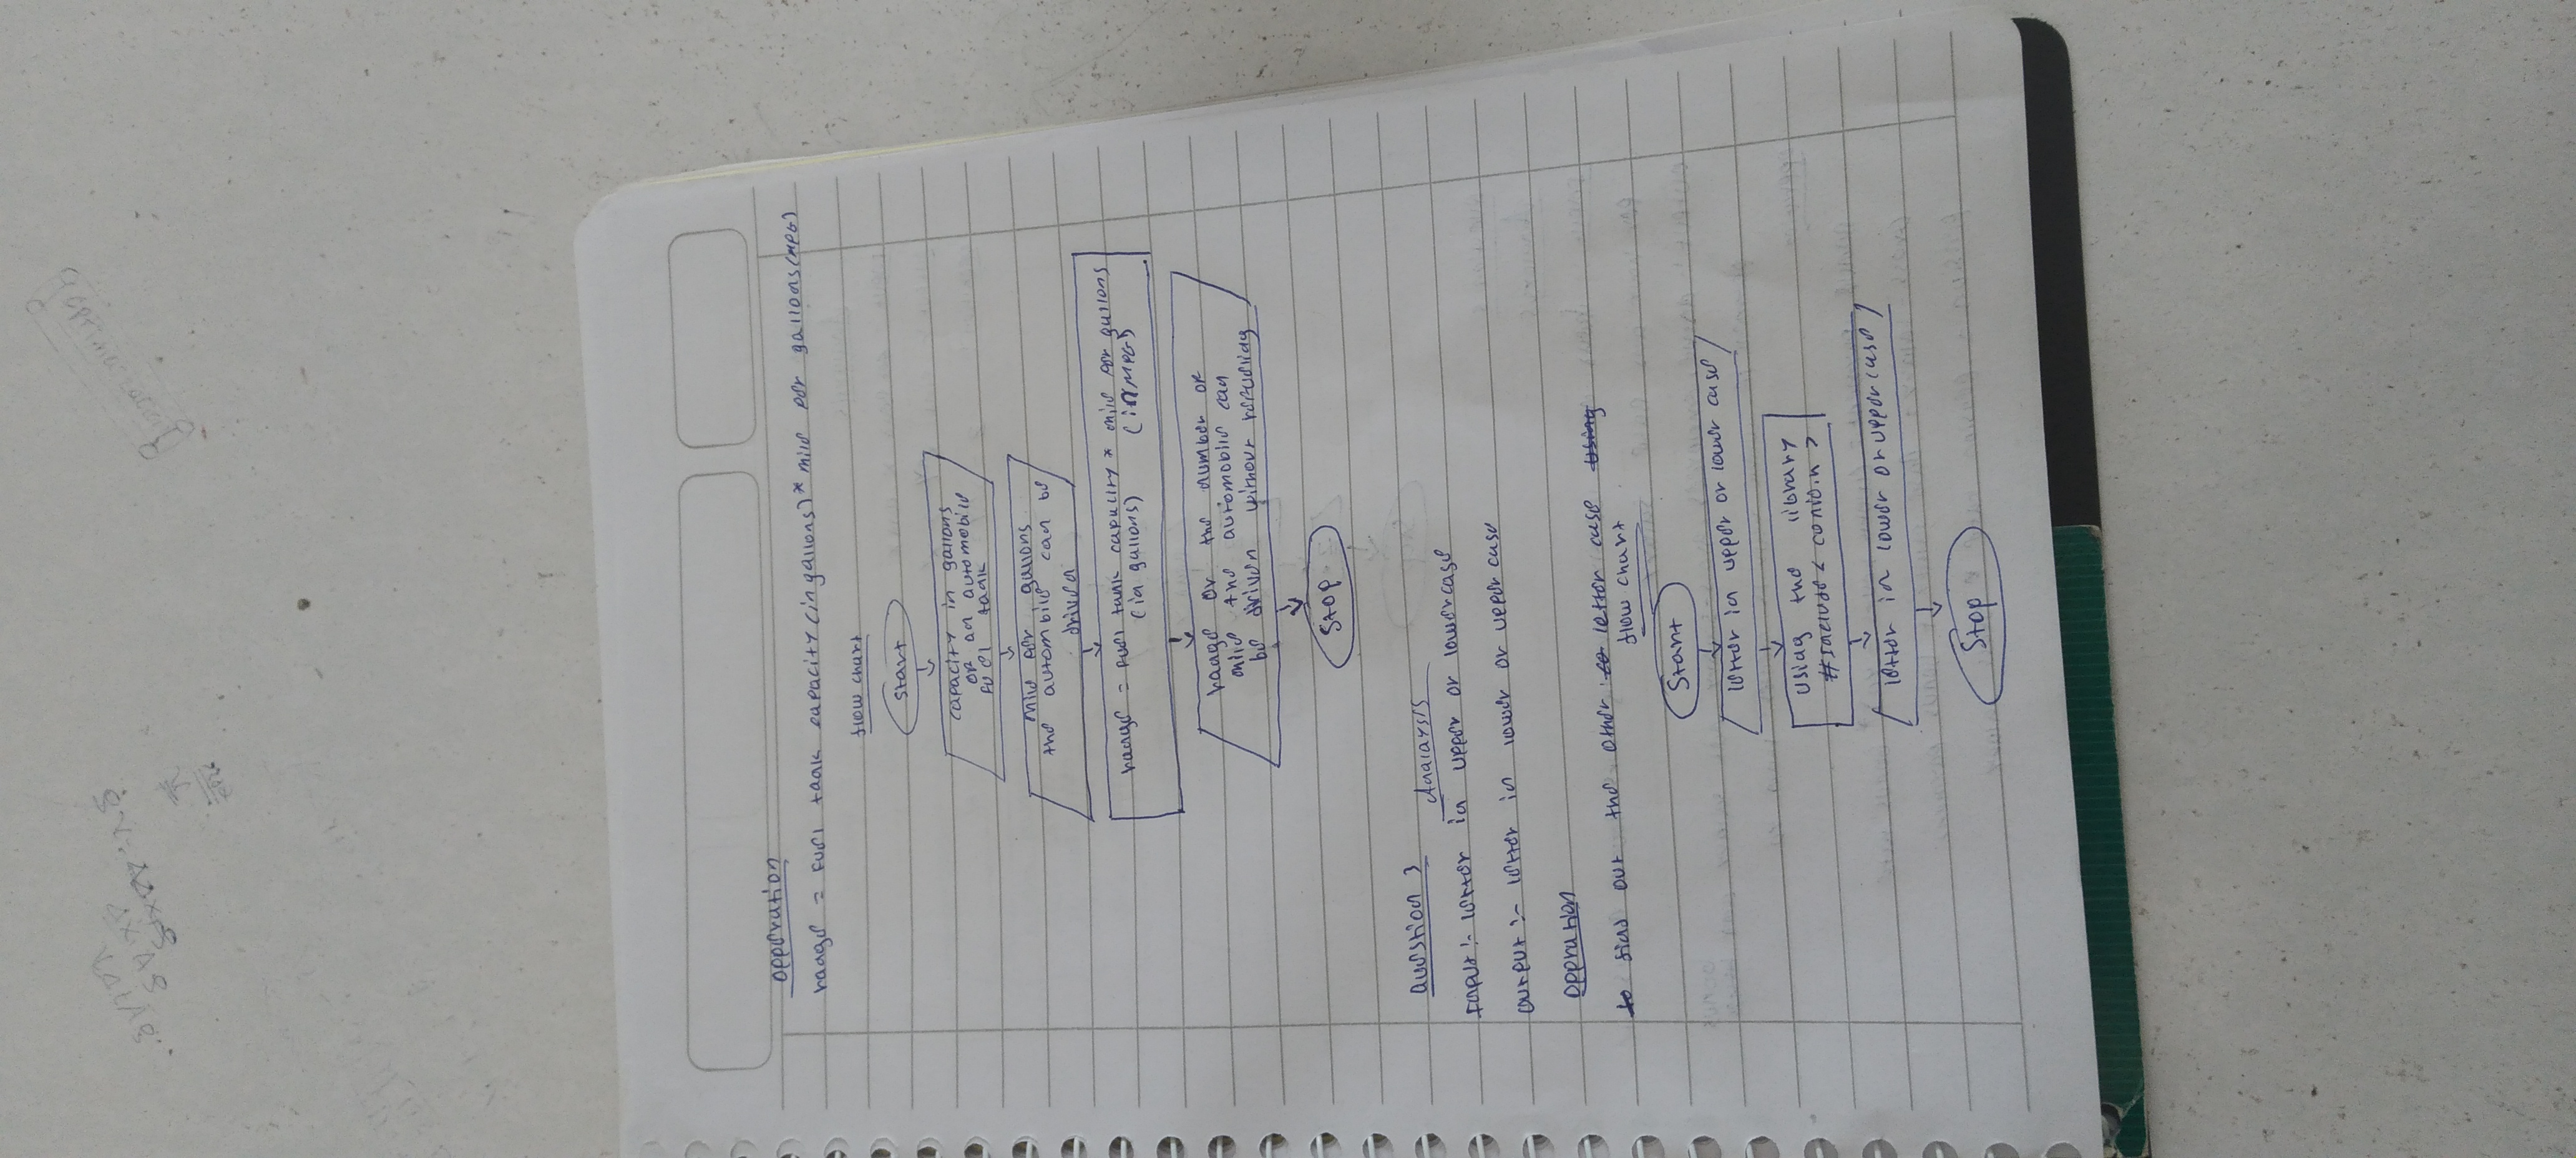 opperation
range = Fuel tank capacity (in gallons) * mile per gallons (MPG)
flow chart
Start
capacity in gallons
of an automobile
fuel tank
mile per gallons
the autombile can be
driven
range = Fuel tank capacity * mile per gallons
(in gallons) (in MPG)
range or the number of
mile the automobile can
be driven without refueling
Stop
Question 3
Analaysis
Input :- letter in upper or lowercase
output :- letter in lower or upper case
oppration
to find out the other letter case using
flow chart
Start
letter in upper or lower case
using the library
#Include < conio.h >
letter in lower or upper case
Stop